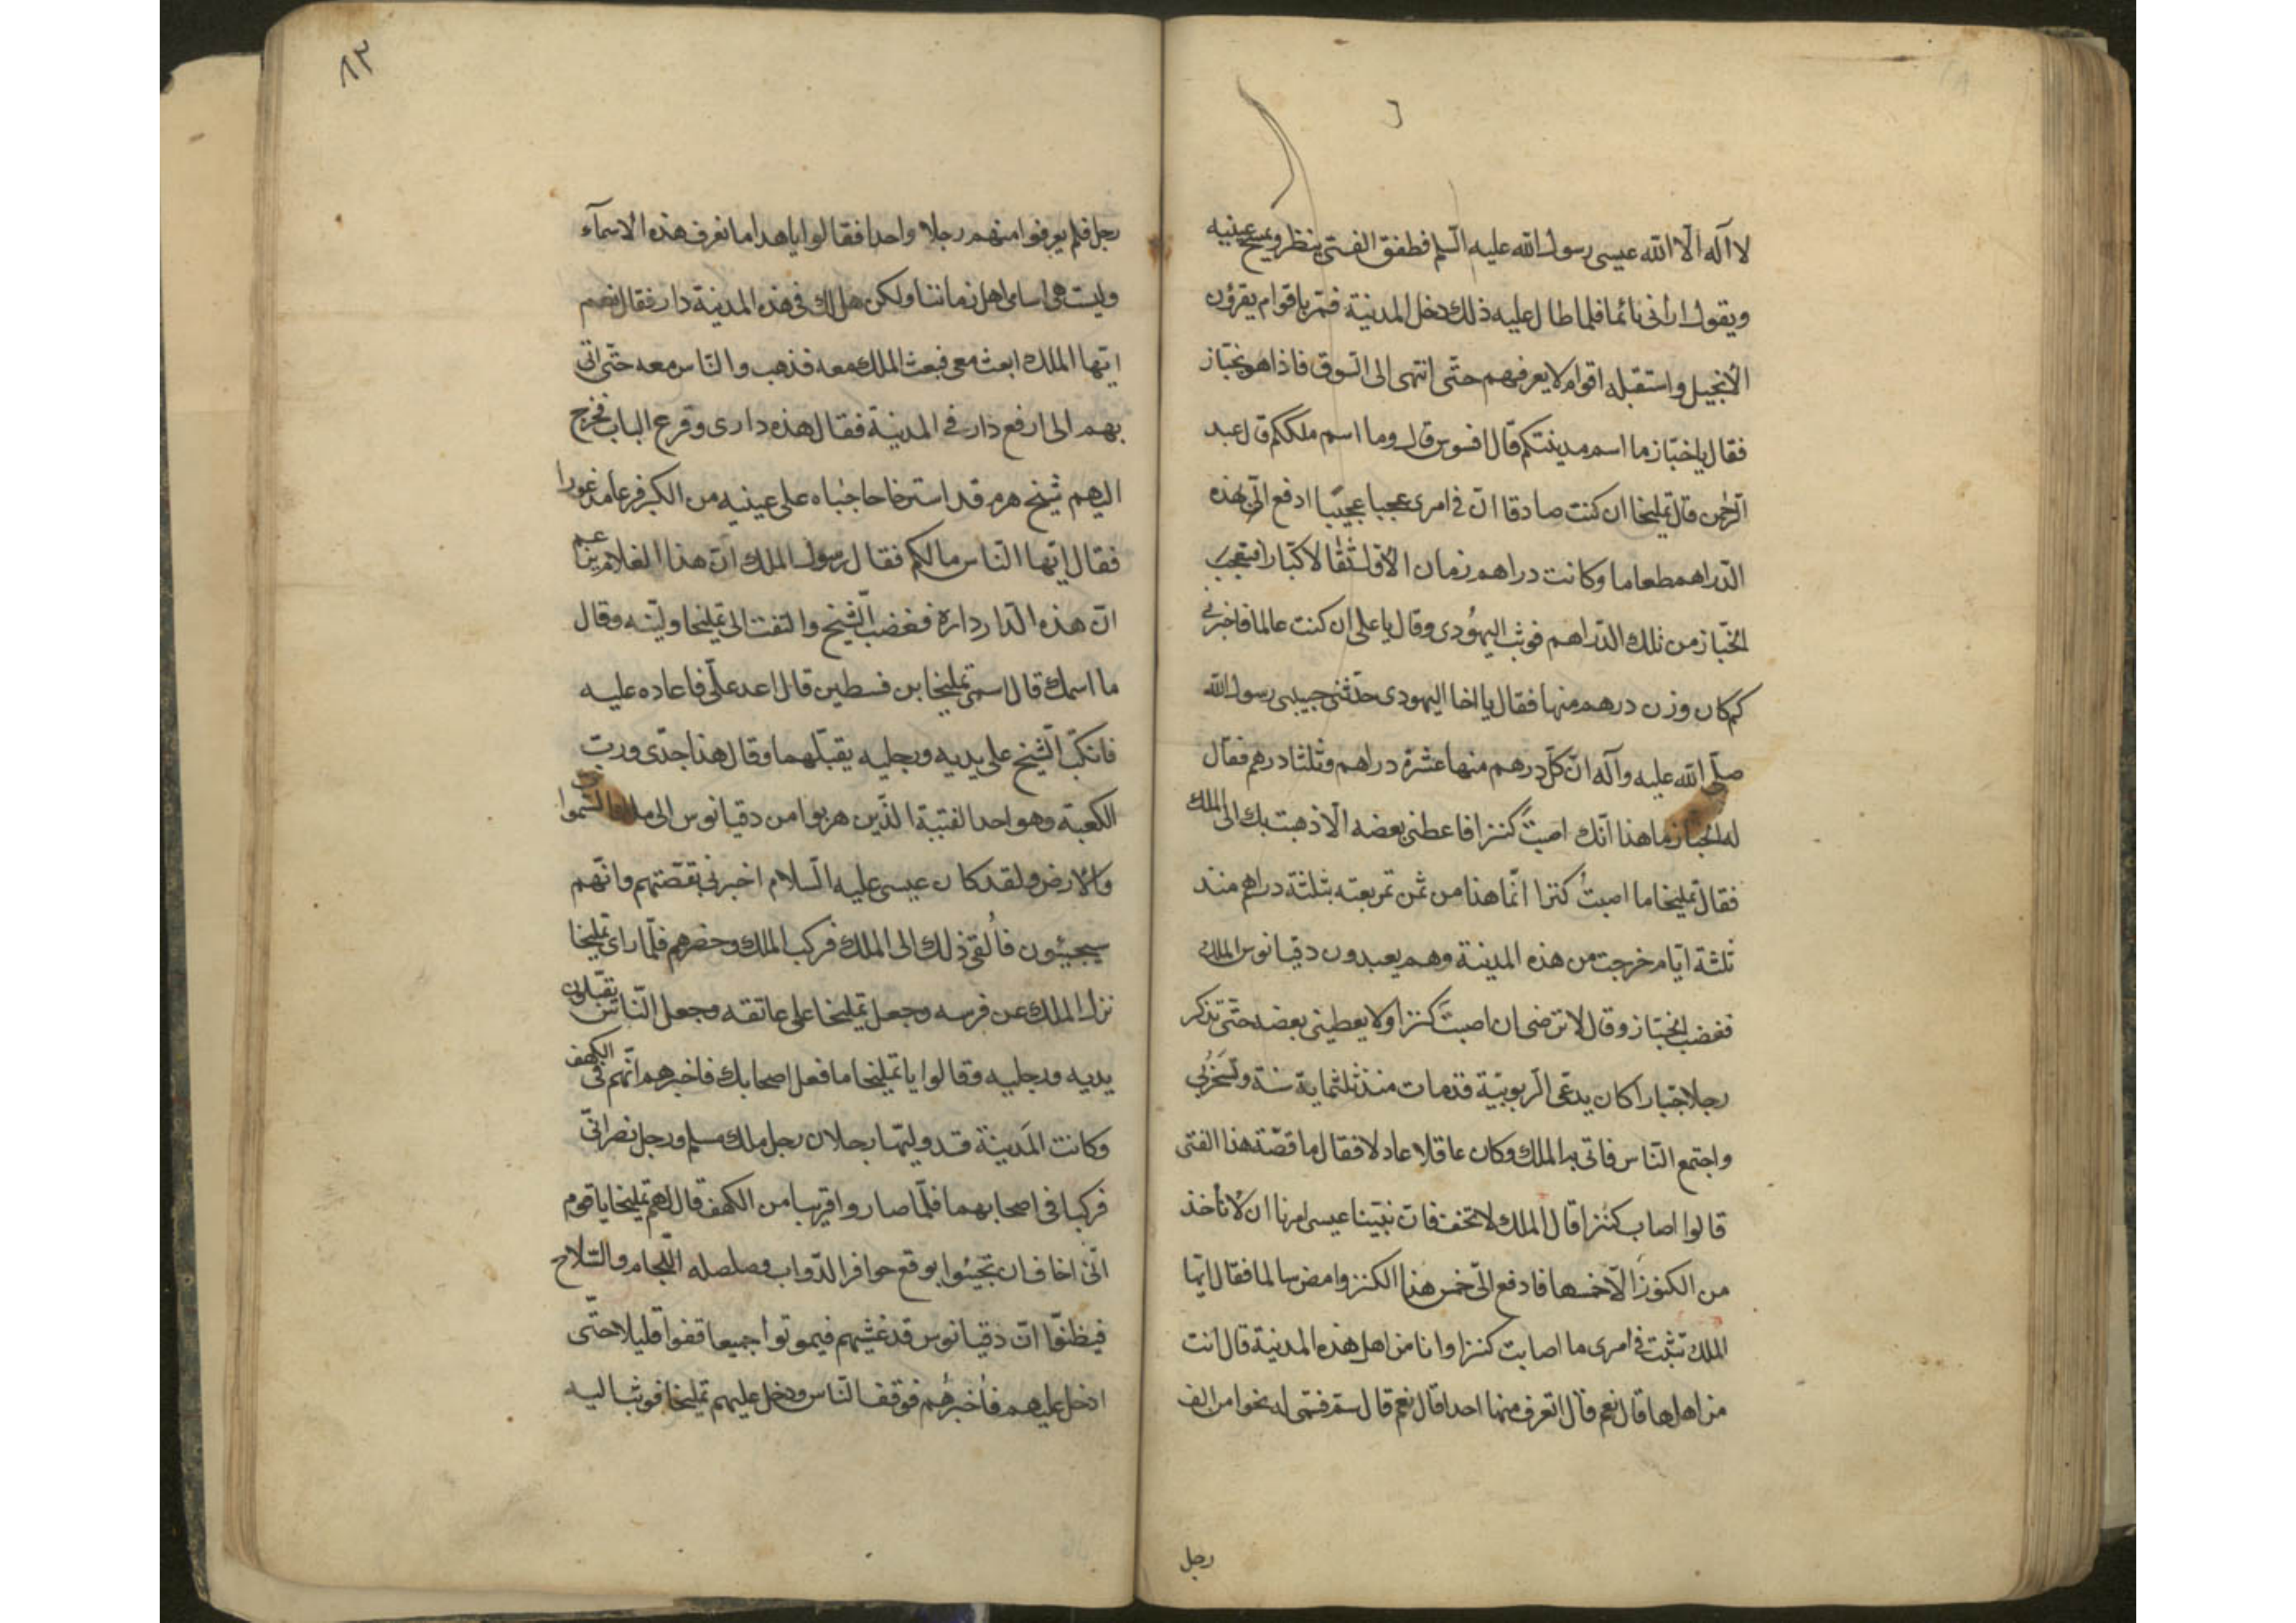 لا اله الا الله عيسى رسول الله عليه السلم فطفق الفتى ينظر ويمسح عينيه
ويقول ارانى نائما فلما طال عليه ذلك دخل المدينة فمر باقوام يقرؤن
الانجيل واستقبله اقوام لا يعرفهم حتّى انتهى الى السّوق فاذا هو بخبّاز
فقال يا خبّاز ما اسم مدينتكم قال افسوس قال وما اسم ملككم قال عبد
الرّحمن قال تمليخا ان كنت صادقا انّ فى امرى عجبا عجيبا ادفع الىّ بهذه
الدّراهم طعاما وكانت دراهم زمان الاوّل ثقالا كبارا فتعجب
الخبّاز من تلك الدّراهم فوثب اليهُودى وقال يا على ان كنت عالما فاخبرنى
كم كان وزن درهم منها فقال يا اخا اليهودى حدّثنى حبيبى رسول الله
صلّى الله عليه وآله انّ كلّ درهم منها عشرة دراهم وثلثا درهم فقال
له الخبّاز ما هذا انّك اصبتَ كنزا فاعطنى بعضه الّا ذهبت بك الى الملك
فقال تمليخا ما اصبتُ كنزا انّما هذا من ثمن تمر بعته بثلثة دراهم منذ
ثلثة ايّام خرجت من هذه المدينة وهم يعبدون دقيانوس الملك
فغضب الخبّاز وقال لا ترضى ان اصبتَ كنزا ولا يعطينى بعضه حتّى تذكر
رجلا جبّارا كان يدّعى الرّبوبيّة قد مات منذ ثلثماية سنة وتسخر بى
واجتمع النّاس فاتى به الملك وكان عاقلا عادلا فقال ما قصّة هذا الفتى
قالوا اصاب كنزا قال الملك لا تخف فان نبيّنا عيسى امرنا ان لا نأخذ
من الكنوز الّا خمسها فادفع الىّ خمس هذا الكنز وامض سالما فقال ايّها
الملك تثبّت فى امرى ما اصابت كنزا وانا من اهل هذه المدينة قال انت
من اهلها قال نعم قال اتعرف منها احدا قال نعم قال سمّ فسمّى له نحوا من الف
رجل
٨٣
رجل فلم يعرفوا منهم رجلا واحدا فقالوا يا هذا ما نعرف هذه الاسمآء
وليست هى اسامى اهل زماننا ولكن هل لك فى هذه المدينة دار فقال نعم
ايّها الملك ابعث معى فبعث الملك معه فذهب والنّاس معه حتّى اتى
بهم الى ارفع دار فى المدينة فقال هذه دارى وقرع الباب فخرج
اليهم شيخ هرم قد استرخا حاجباه على عينيه من الكبر فزعا مذعورا
فقال ايّها النّاس ما لكم فقال رسول الملك انّ هذا الغلام يزعم
انّ هذه الدّار داره فغضب الشّيخ والتفت الى تمليخا وقال
ما اسمك قال اسمى تمليخا بن فسطين قال اعد علىّ فاعاده عليه
فانكبّ الشّيخ على يديه ورجليه يقبّلهما وقال هذا جدّى وربّ
الكعبة وهو احد الفتية الّذين هربوا من دقيانوس الى ملك السّموات
والارض ولقد كان عيسى عليه السّلام اخبرنى بقصّتهم وانّهم
سيجيئون فاُلقى ذلك الى الملك فركب الملك وحضرهم فلمّا راى تمليخا
نزل الملك عن فرسه وجعل تمليخا على عاتقه وجعل النّاس يقبّلون
يديه ورجليه وقالوا يا تمليخا ما فعل اصحابك فاخبرهم انّهم فى الكهف
وكانت المَدينة قد وليّها رجلان رجل ملك مسلم ورجل نصرانىّ
فركبا فى اصحابهما فلمّا صاروا قريبا من الكهف قال لهم تمليخا يا قوم
انّى اخاف ان تجيئوا بوقع حوافر الدّواب وصلصله اللّجام والسّلاح
فيظنّوا انّ دقيانوس قد غشيهم فيموتوا جميعا قفوا قليلا حتّى
ادخل عليهم فاُخبرُهُم فوقف النّاس ودخل عليهم تمليخا فوثب اليه